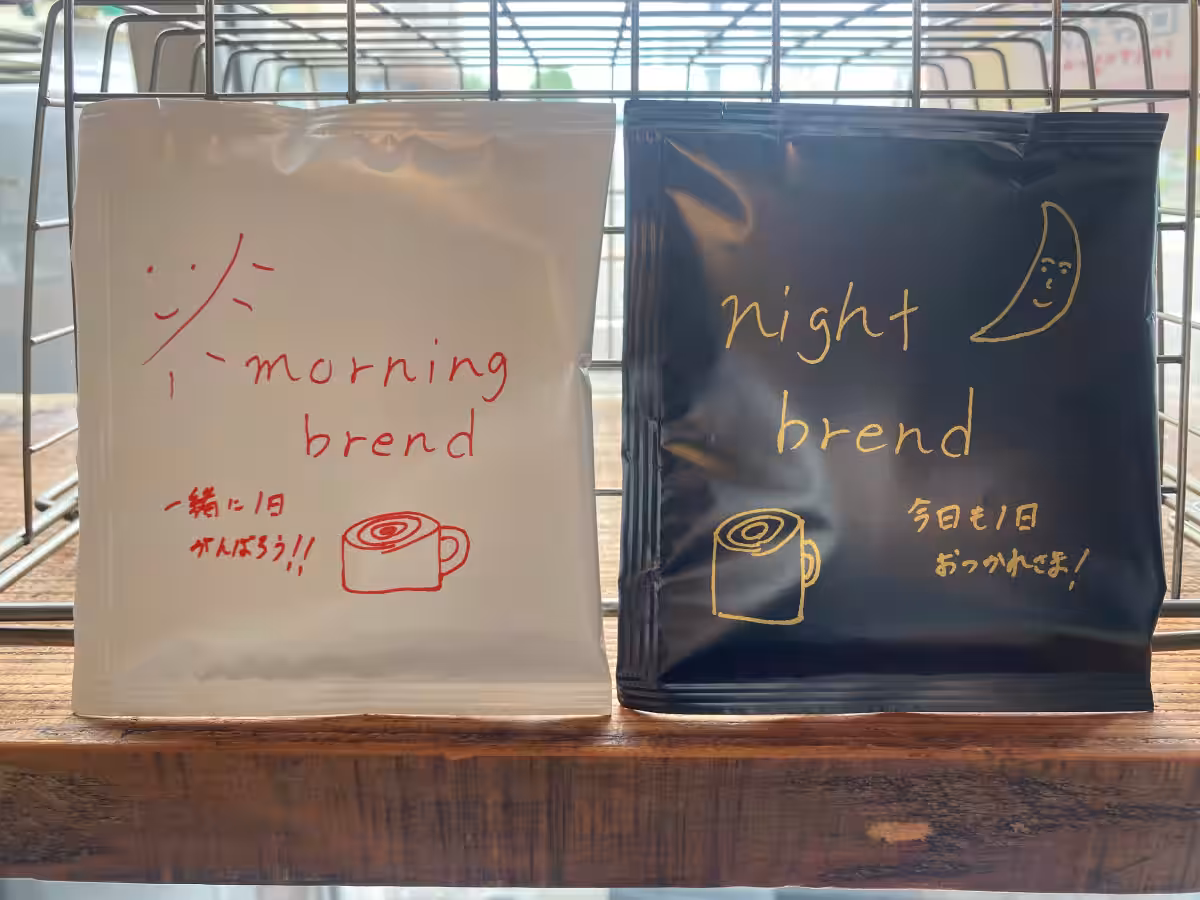 morning
brend
一緒に1日
がんばろう!!
night
brend
今日も1日
おつかれさま!